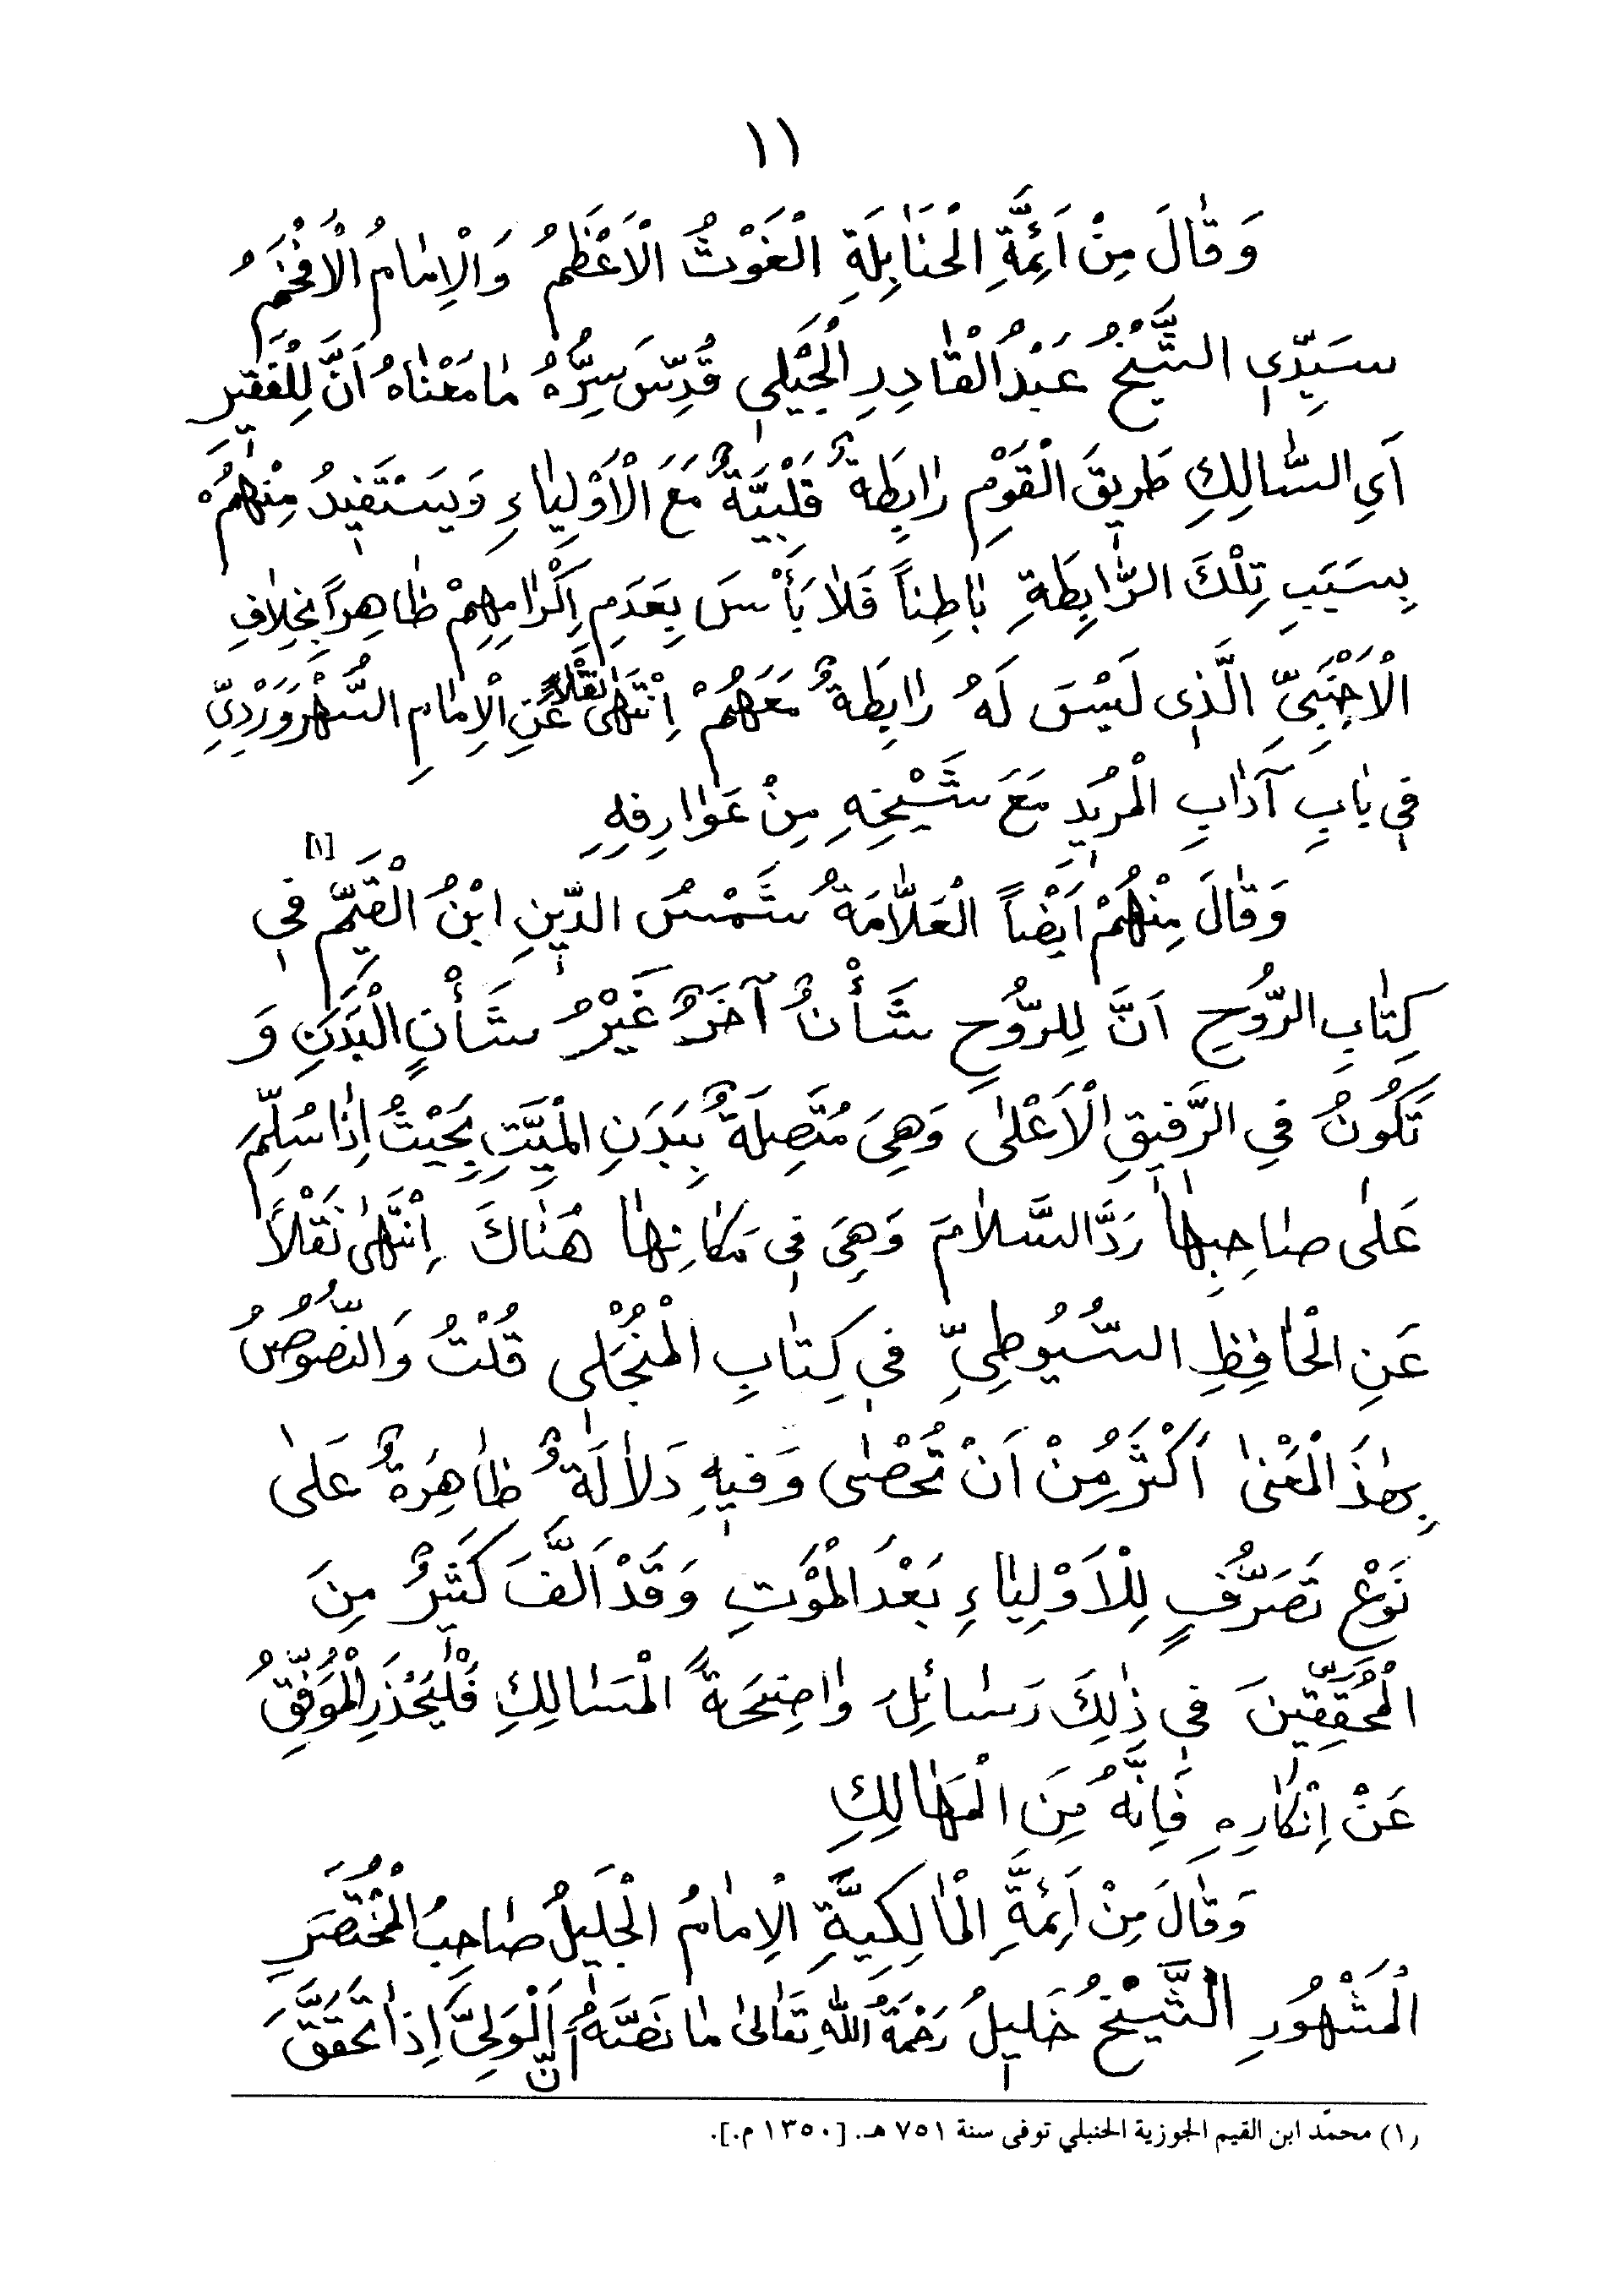 ١١
وَقٰالَ مِنْ اَئِمَّةِ الْحَنٰابِلَةِ الْغَوْثُ الْاَعْظَمُ وَالْاِمٰامُ الْاَفْخَمُ
سَيِّدِي الشَّيْخُ عَبْدُ الْقٰادِرِ الْجَيْلِي قُدِّسَ سِرُّهُ مٰا مَعْنٰاهُ اَنَّ لِلْفَقِيرِ
اَيِ السّٰالِكِ طَرِيقَ الْقَوْمِ رٰابِطَةٌ قَلْبِيَّةٌ مَعَ الْاَوْلِيٰاءِ وَيَسْتَفِيدُ مِنْهُمْ
بِسَبَبِ تِلْكَ الرّٰابِطَةِ بٰاطِناً فَلٰا بَأْسَ بِعَدَمِ اِكْرٰامِهِمْ ظٰاهِراً بِخِلٰافِ
الْاَجْنَبِيِّ الَّذِي لَيْسَ لَهُ رٰابِطَةٌ مَعَهُمْ اِنْتَهٰى نَقْلًا عَنِ الْاِمٰامِ السُّهْرَوَرْدِيِّ
فِي بٰابِ آدٰابِ الْمُرِيدِ مَعَ شَيْخِهِ مِنْ عَوٰارِفِهِ
وَقٰالَ مِنْهُمْ اَيْضاً الْعَلّٰامَةُ شَمْسُ الدِّينِ ابْنُ الْقَيِّمِ [١] فِي
كِتٰابِ الرُّوحِ اَنَّ لِلرُّوحِ شَأْنٌ آخَرُ غَيْرُ شَأْنِ الْبَدَنِ وَ
تَكُونُ فِي الرَّفِيقِ الْاَعْلٰى وَهِيَ مُتَّصِلَةٌ بِبَدَنِ الْمَيِّتِ بِحَيْثُ اِذٰا سُلِّمَ
عَلٰى صٰاحِبِهٰا رَدَّ السَّلٰامَ وَهِيَ فِي مَكٰانِهٰا هُنٰاكَ اِنْتَهٰى نَقْلًا
عَنِ الْحٰافِظِ السُّيُوطِيِّ فِي كِتٰابِ الْمُنْجَلِي قُلْتُ وَالنُّصُوصُ
بِهٰذَ الْمَعْنٰى اَكْثَرُ مِنْ اَنْ تُحْصٰى وَفِيهِ دَلٰالَةٌ ظٰاهِرَةٌ عَلٰى
نَوْعِ تَصَرُّفٍ لِلْاَوْلِيٰاءِ بَعْدَ الْمَوْتِ وَقَدْ اَلَّفَ كَثِيرٌ مِنَ
الْمُحَقِّقِينَ فِي ذٰلِكَ رَسٰائِلَ وٰاضِحَةً الْمَسٰالِكِ فَلْيَحْذَرِ الْمُوَفَّقُ
عَنْ اِنْكٰارِهِ فَاِنَّهُ مِنَ الْمَهٰالِكِ
وَقٰالَ مِنْ اَئِمَّةِ الْمٰالِكِيَّةِ الْاِمٰامُ الْجَلِيلُ صٰاحِبُ الْمُخْتَصَرِ
الْمَشْهُورِ الشَّيْخُ خَلِيلُ رَحْمَةُ اللّٰهِ تَعٰالٰى مٰا نَصَّهُ اَنَّ الْوَلِيَّ اِذٰا تَحَقَّقَ
(١) محمّد ابن القيم الجوزية الحنبلي توفى سنة ٧٥١ هـ. [١٣٥٠ م.].